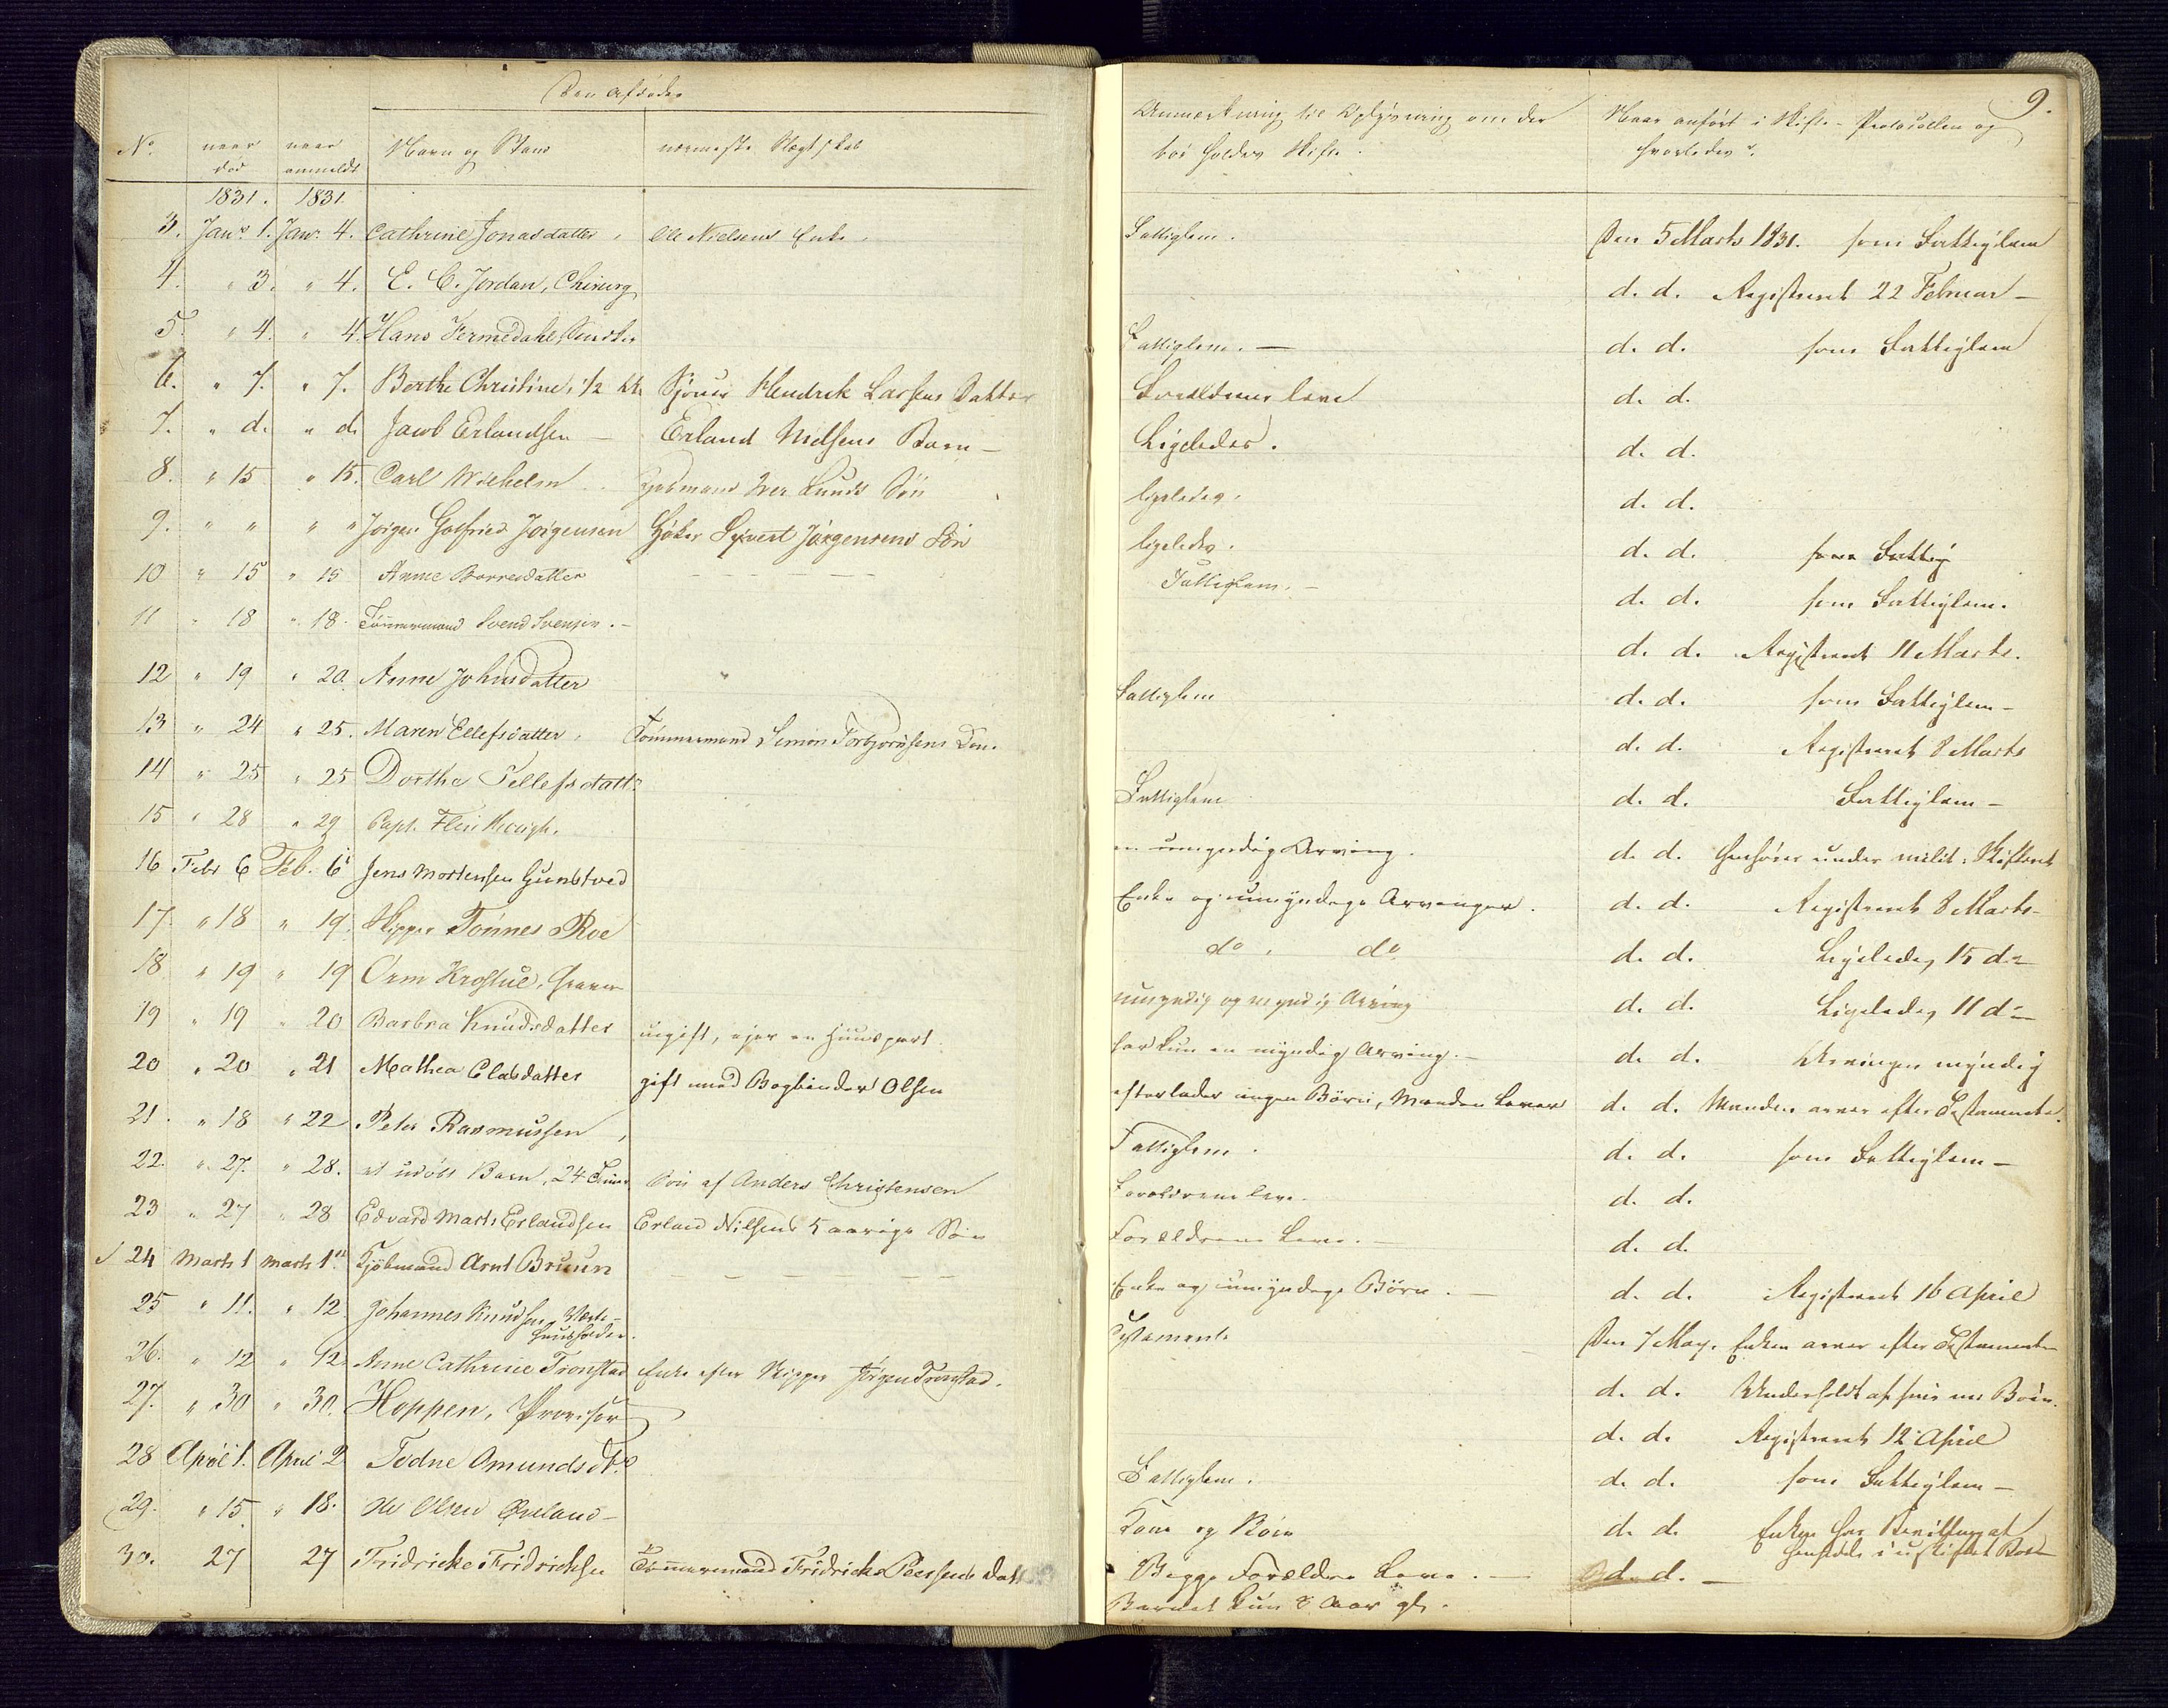 9.
Den Afdøde
No. naar død naar anmeldt Navn og Stand nærmeste Slægtskab Anmærkning til Oplysning om der bør holdes Skifte. Naar anført i Skifte-Protocollen og hvorledes.
1831. 1831.
3. Janr. 1. Janr. 4. Cathrine Jonasdatter, Ole Nielsens Enke. Fattiglem. Den 5 Marts 1831. som Fattiglem
4. " 3. " 4. E. C. Jordan, Chirurg d. d. Registreret 22 Februar -
5. " 4. " 4. Hans Fermedahl, Fattiglem. - d. d. som Fattiglem
6. " 7. " 7. Berthe Christine, 1/2 Hendrik Larsens Datter Forældrene leve d. d.
7. " d. " d. Jacob Erlandsen - Erland Nielsens Barn - Ligeledes. d. d.
8. " 15 " 15. Carl Wilhelm Kjøbmand Iver Lunds Søn ligeledes. d. d.
9. " " " " Jørgen Gotfried Jørgensen Høker Syvert Jørgensens Søn ligeledes. d. d. som Fattig
10 " 15 " 15 Anne Borresdatter - - - - Fattiglem. - d. d. som Fattiglem.
11 " 18 " 18. Tømmermand Svend Svensen. - d. d. Registreret 11 Marts.
12 " 19 " 20. Anne Johnsdatter Fattiglem d. d. som Fattiglem -
13 " 24 " 25. Maren Ellefsdatter, Tømmermand Simon Torbjørnsens Kone. d. d. Registreret 8 Marts
14 " 25 " 25 Dorthe Tellefsdattr. Fattiglem d. d. Fattiglem -
15 " 28 " 29 Capt. Fleischer d. d. henhører under milit: Skifteret
16 Febr 6 Feb. 6 Jens Mortensen Gunstved en umyndig Arving. d. d. Registreret 8 Marts -
17. " 18 " 19. Skipper Tønnes Roe Enke og umyndige Arvinger. d. d. Ligeledes 15 do
18 " 19 " 19 Orm Krostue, do. do. d. d. Ligeledes 11 do
19 " 19 " 20 Barbra Knudsdatter ugift, ejer en Huuspart. umyndig og myndig Arving d. d. Arvingen myndig
20 " 20 " 21 Mathea Clasdatter gift med Bogbinder Olsen har kun en myndig Arving. -
efterlader ingen Børn, Manden Lever d. d. Manden arver efter Testamente.
21. " 18 " 22. Peter Rasmussen, Fattiglem. d. d. som Fattiglem -
22. " 27. " 28. et udøbt Barn, 24 Timer Søn af Anders Christensen Forældrene leve. d. d.
23 " 27 " 28 Edvard Marts Erlandsen Erland Nilsens 5 aarige Søn Forældrene Leve. - d. d.
24 Marts 1 Marts 1ste Kjøbmand Arnt Bruun - - - - - Enke og umyndige Børn. - d. d. Registreret 16 April
25 " 11. " 12 Johannes Knudsen, Testamente Den 7 May. Enken arver efter Testamente
26. " 12 " 12. Anne Cathrine Tronstad Enke efter Skipper Jørgen Tronstad. d. d. Underholdt af sine Børn.
27. " 30 " 30. Hoppen, Provisor d. d. Registreret 12 April
28 April 1. April 2 Todne Omunds Dtr. Fattiglem. d. d. som Fattiglem -
29. " 15 " 18. Ole Olsen - Kone og Børn d. d. Enken har Bevilling at hensidde i uskiftet Bo
30. 27 27 Fridricke Fridrichsen Tømmermand Fridricks Peersens Datt Begge Forældre Leve. - d. d. -
Barnet kun 8 Aar gl.